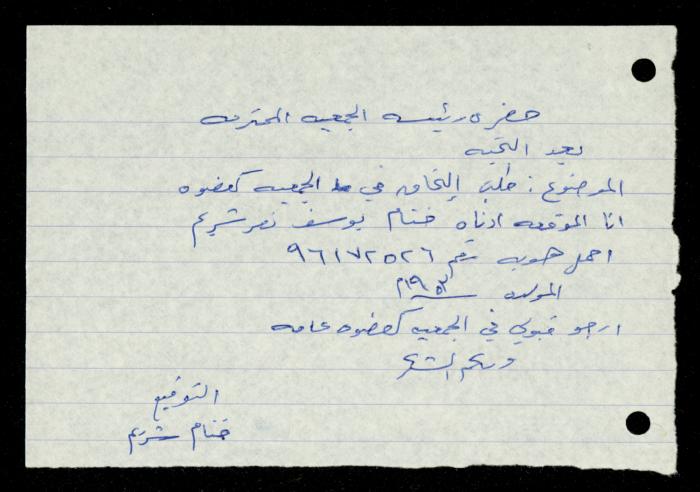 حضرة رئيسه الجمعيه المحترمه
بعد التحيه
الموضوع : طلب إلتحاق في الجمعيه كعضوه
انا الموقعه ادناه ختام يوسف نصر شريم
احمل هويه رقم ٩٦١٧٢٥٢٦
المولده ١٩٥٣م
ارجو قبولي في الجمعيه كعضوه عامه
ولكم الشكر
التوقيع
ختام شريم